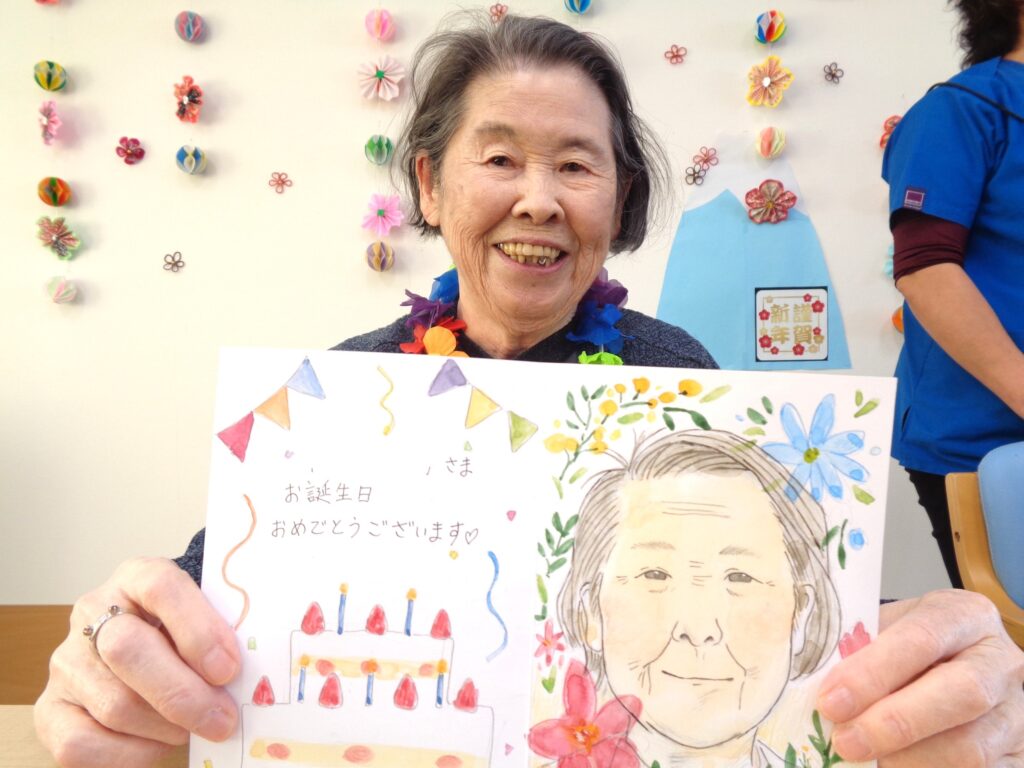 さま
お誕生日
おめでとうございます♡
謹賀
新年